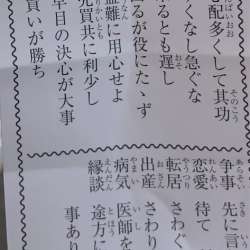 配多くして其功
なし急ぐな
るとも遅し
るが役にたゝず
盗難に用心せよ
売買共に利少し
早目の決心が大事
買いが勝ち
争事 先に言
恋愛 待て
転居 さわ
出産 さわり
病気 医師を
縁談 途方に
事あり